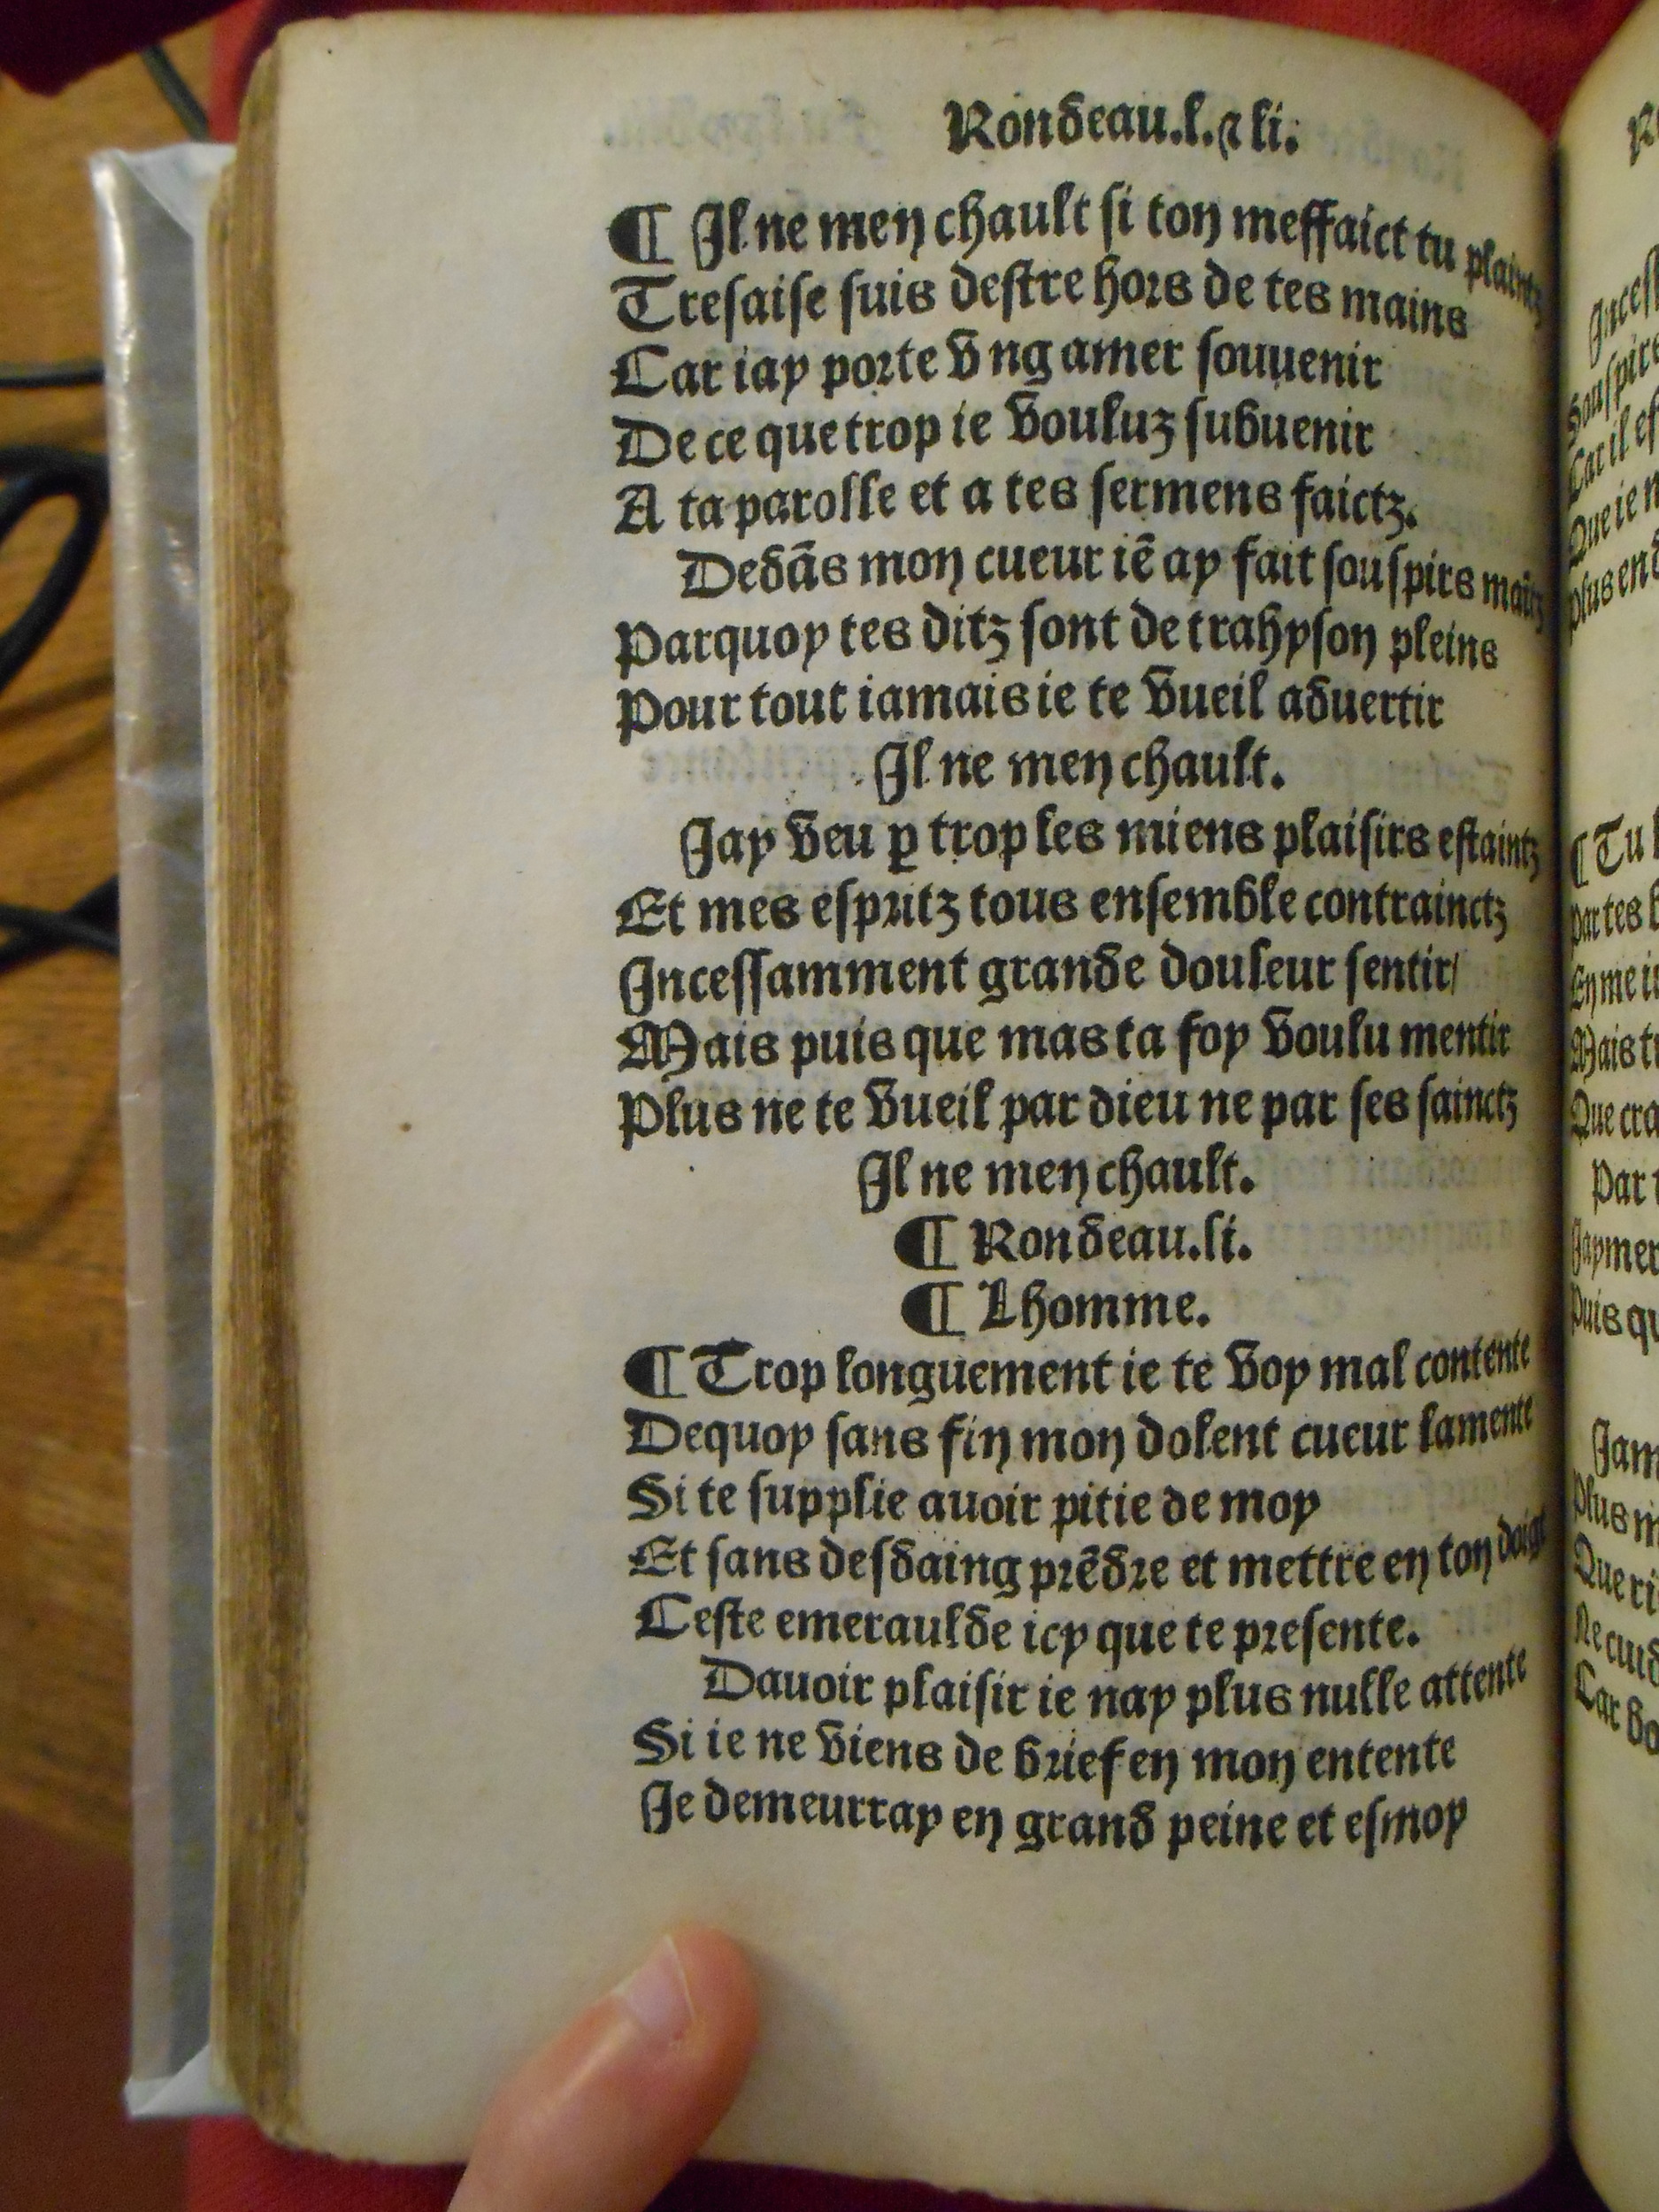 Rondeau.l.⁊ li.
¶ Il ne men chault si ton meffaict tu plaintz
Tresaise suis destre hors de tes mains
Car iay porte vng amer souuenir
De ce que trop ie vouluz subuenir
A ta parolle et a tes sermens faictz.
Dedãs mon cueur iẽ ay fait souspirs maintz
Parquoy tes ditz sont de trahyson pleins
Pour tout iamais ie te vueil aduertir
Il ne men chault.
Iay veu ꝑ trop les miens plaisirs estaintz
Et mes espritz tous ensemble contrainctz
Incessamment grande douleur sentir/
Mais puis que mas ta foy voulu mentir
Plus ne te vueil par dieu ne par ses sainctz
Il ne men chault.
¶ Rondeau.li.
¶ Lhomme.
¶ Trop longuement ie te voy mal contente
Dequoy sans fin mon dolent cueur lamente
Si te supplie auoir pitie de moy
Et sans desdaing prẽdre et mettre en ton doigt
Ceste emeraulde icy que te presente.
Dauoir plaisir ie nay plus nulle attente
Si ie ne viens de brief en mon entente
Ie demeurray en grand peine et esmoy